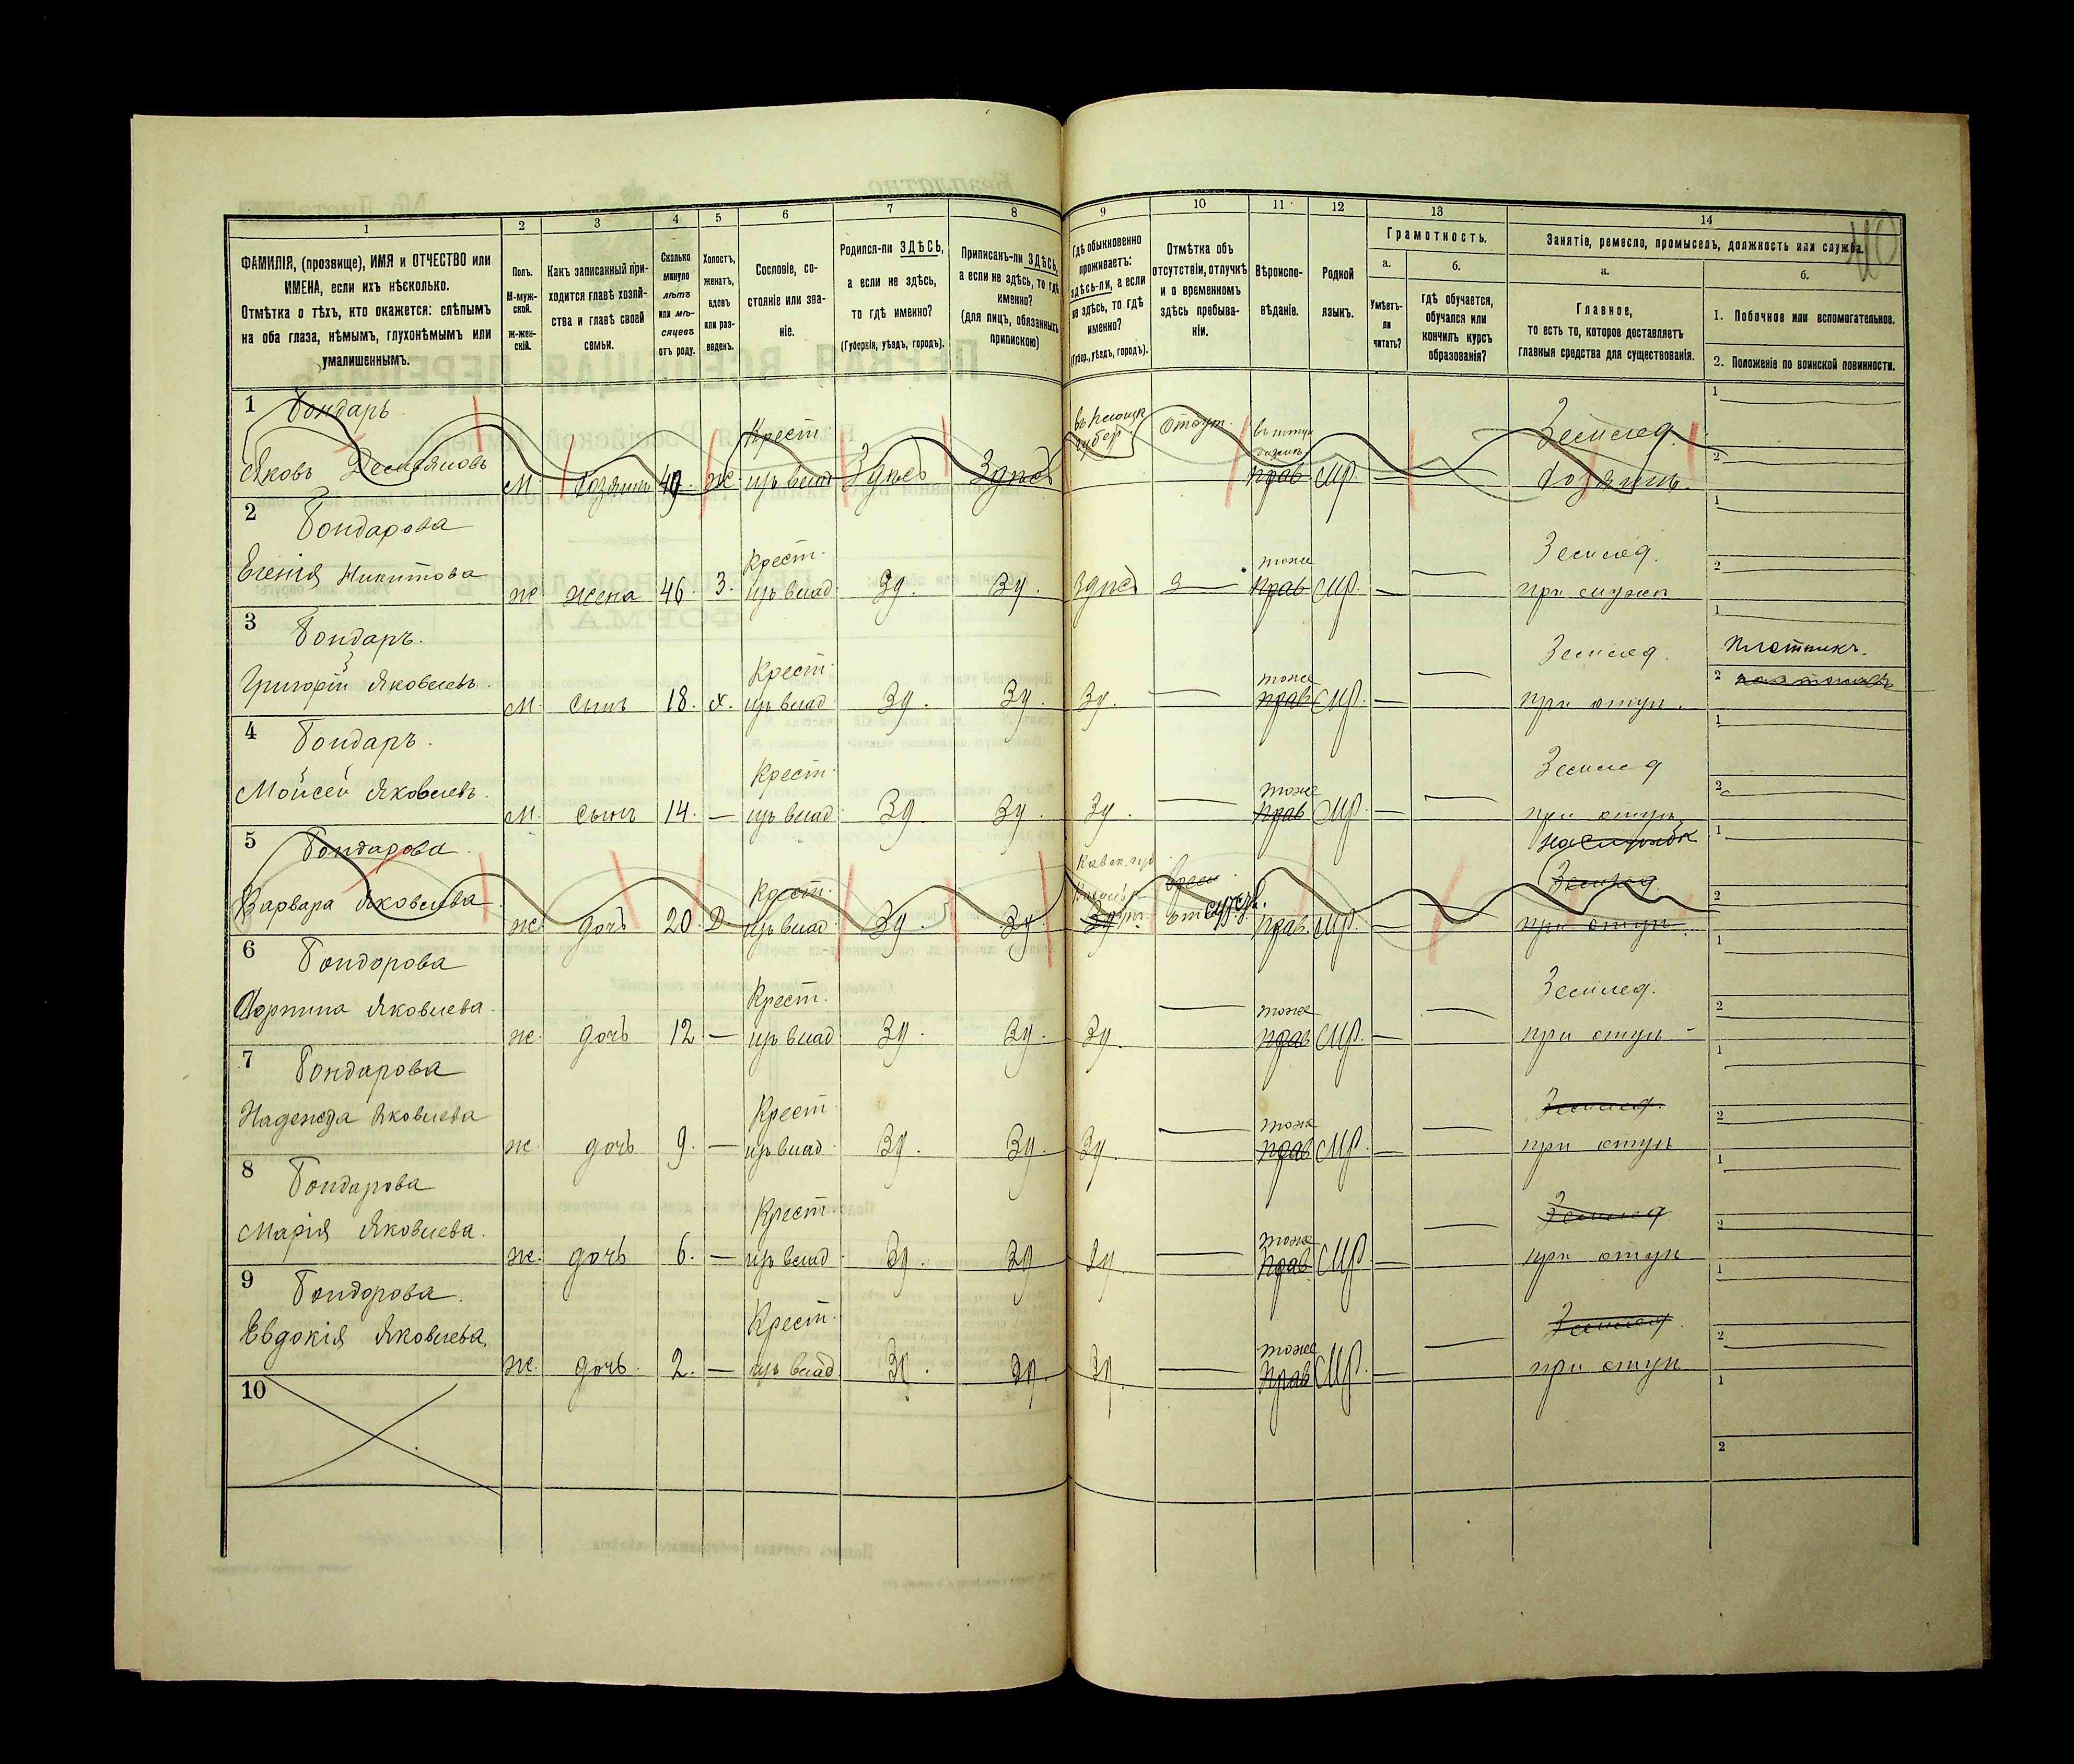 1 2 3 4 5 6 7 8 9 10 11 12 13 14
ФАМИЛІЯ, (прозвище), ИМЯ и ОТЧЕСТВО или
ИМЕНА, если ихъ нѣсколько.
Отмѣтка о тѣхъ, кто окажется: слѣпымъ
на оба глаза, нѣмымъ, глухонѣмымъ или
умалишеннымъ.
Полъ.
М-муж-
ской.
Ж-жен-
скій.
Какъ записанный при-
ходится главѣ хозяй-
ства и главѣ своей
семьи.
Сколько
минуло
лѣтъ
или мѣ-
сяцевъ
отъ роду.
Холостъ,
женатъ,
вдовъ
или раз-
веденъ.
Сословіе, со-
стояніе или зва-
ніе.
Родился-ли ЗДѢСЬ,
а если не здѣсь,
то гдѣ именно?
(Губернія, уѣздъ, городъ).
Приписанъ-ли ЗДѢСЬ,
а если не здѣсь, то гдѣ
именно?
(для лицъ, обязанныхъ
припискою)
Гдѣ обыкновенно
проживаетъ:
здѣсь-ли, а если
не здѣсь, то гдѣ
именно?
(Губер., уѣздъ, городъ).
Отмѣтка объ
отсутствіи, отлучкѣ
и о временномъ
здѣсь пребыва-
ніи.
Вѣроиспо-
вѣданіе.
Родной
языкъ.
Грамотность.
а.
Умѣетъ-
ли
читать?
б.
гдѣ обучается,
обучался или
кончилъ курсъ
образованія?
Занятіе, ремесло, промыселъ, должность или служба.
а.
Главное,
то есть то, которое доставляетъ
главныя средства для существованія.
б.
1. Побочное или вспомогательное.
2. Положеніе по воинской повинности.
40
1 Бондарь Крест Отсут. Землед. 1
Яковъ Демьяновъ М. Хозяинъ 49. Ж. изъ влад Здѣсь Здѣсь губер. прав МР. — Хозяинъ. 2
2 Бондарова Крест. тоже Землед. 1
Евгенія Никитова ж жена 46. З. изъ влад Зд. Зд. Здѣсь прав МР. — — 2
3 Бондаръ. Крест. тоже Землед. 1 Плотникъ.
Григорій Яковлевъ. М. сынъ 18. х. изъ влад Зд. Зд. Зд. — прав МР. — — при отцѣ. 2
4 Бондаръ. Крест. тоже Землед 1
Мойсей Яковлевъ. М. сынъ 14. — изъ влад Зд. Зд. Зд. — прав МР. — — при отцѣ 2
5 Бондарова Крест. Землед. 1
Варвара Яковлева ж. дочь 20. Д изъ влад Зд. Зд. Зд. прав. МР. — — при отцѣ. 2
6 Бондорова Крест. тоже Землед. 1
Яковлева. ж. дочь 12 — изъ влад Зд. Зд. Зд. — прав МР. — — при отцѣ 2
7 Бондарова Крест тоже Землед. 1
Надежда Яковлева ж. дочь 9. — изъ влад Зд. Зд. Зд. — прав МР. — — при отцѣ 2
8 Бондарова Крест. тоже Землед 1
Марія Яковлева. ж. дочь 6. — изъ влад Зд. Зд Зд. — прав МР — — при отцѣ 2
9 Бондорова. Крест. тоже Землед. 1
Евдокія Яковлева. ж. дочь. 2. — изъ влад Зд. Зд. Зд. — прав МР. — — при отцѣ 2
10 1
2